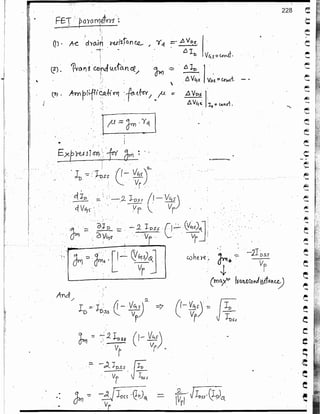 228
FET parameters :
(1). AC drain resistance, r_d = ΔV_DS / ΔI_D | V_GS = const.
(2). Trans conductance, g_m = ΔI_D / ΔV_GS | V_DS = const.
(3). Amplification factor, μ = ΔV_DS / ΔV_GS | I_D = const.
μ = g_m · r_d
Expression for g_m :
I_D = I_DSS (1 - V_GS / V_P)^2
dI_D / dV_GS = -2 I_DSS / V_P (1 - V_GS / V_P)
g_m = ∂I_D / ∂V_GS = -2 I_DSS / V_P [1 - (V_GS)_Q / V_P]
g_m = g_mo [1 - (V_GS)_Q / V_P] where, g_mo = -2I_DSS / V_P
(max^m transconductance)
And,
I_D = I_DSS (1 - V_GS / V_P)^2 ⇒ (1 - V_GS / V_P) = √(I_D / I_DSS)
g_m = -2 I_DSS / V_P (1 - V_GS / V_P)
= -2 I_DSS / V_P √(I_D / I_DSS)
∴ g_m = -2 / V_P √(I_DSS (I_D)_Q) = 2 / |V_P| √(I_DSS · (I_D)_Q)